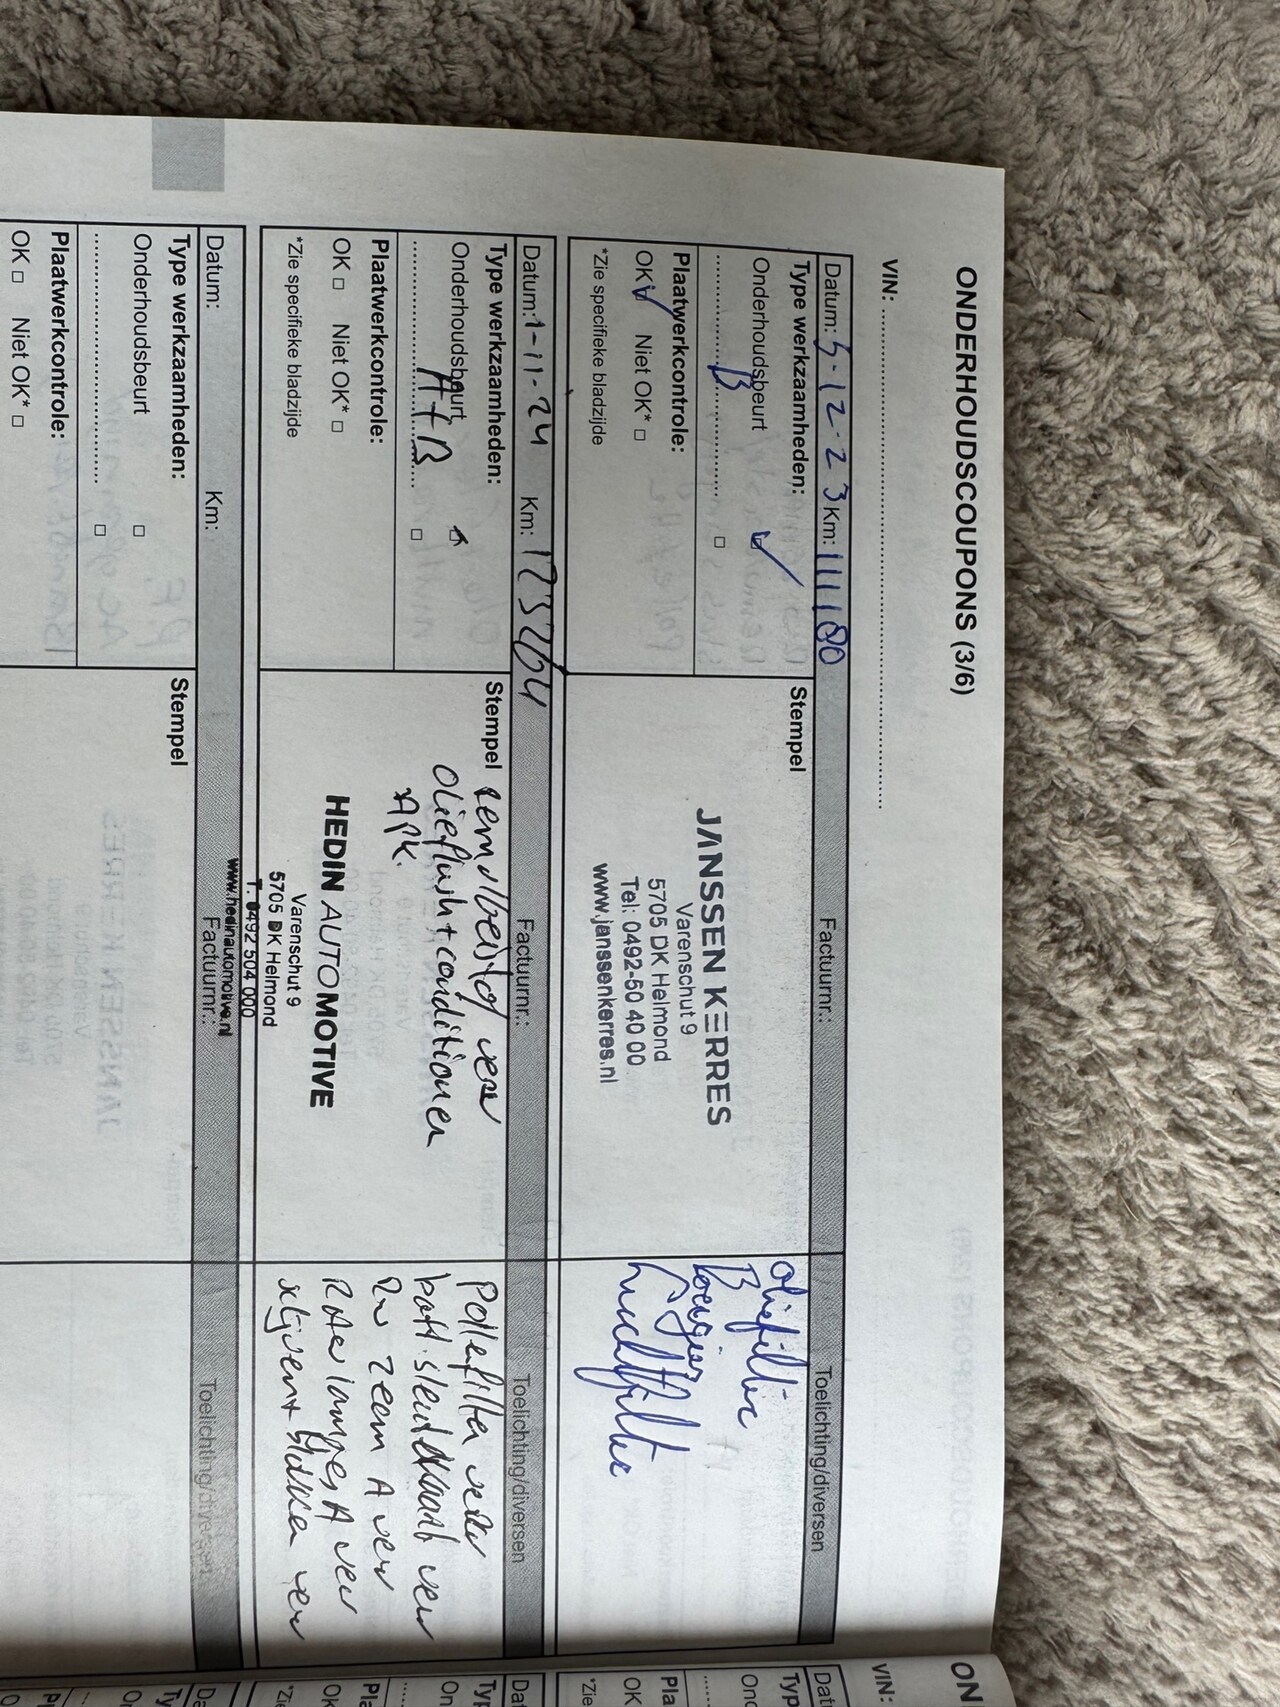 ONDERHOUDSCOUPONS (3/6)
VIN:
Datum: 5-12-23 Km: 111180 Factuurnr.: Toelichting/diversen
Type werkzaamheden:
Onderhoudsbeurt
B
Plaatwerkcontrole:
OK Niet OK*
*Zie specifieke bladzijde
Stempel
JANSSEN KERRES
Varenschut 9
5705 DK Helmond
Tel: 0492-50 40 00
www.janssenkerres.nl
oliefilter
B
luchtfilter
Datum: 1-11-24 Km: 123264 Factuurnr.: Toelichting/diversen
Type werkzaamheden:
Onderhoudsbeurt
A+B
Plaatwerkcontrole:
OK Niet OK*
*Zie specifieke bladzijde
Stempel remvloeistof ver
olieflush+conditioner
APK.
HEDIN AUTOMOTIVE
Varenschut 9
5705 DK Helmond
T. 0492 504 000
www.hedinautomotive.nl
Pollenfilter ver
batt. sleutelkaart ver
A ver
A ver
ver
Datum: Km: Factuurnr.: Toelichting/diversen
Type werkzaamheden:
Onderhoudsbeurt
Plaatwerkcontrole:
OK Niet OK*
Stempel
ON
VIN: